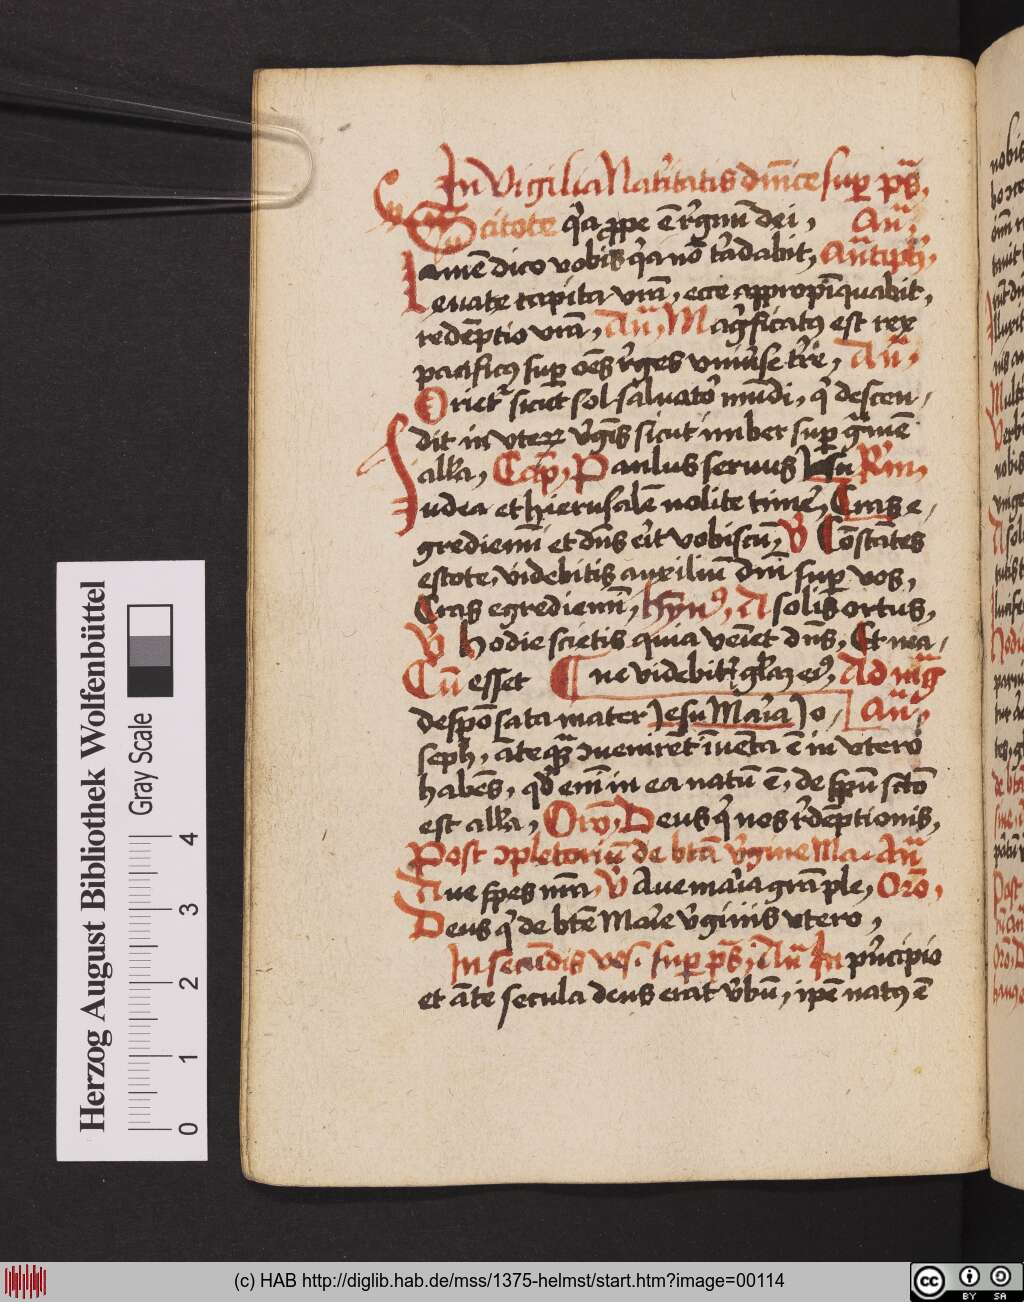 In Vigilia Natĩtatis dñice sup ps̃.
Scitote q̃a ꝓpe ē r̃gnũ dei, Añ.
Amē dico vobis q̃a nō t̃adabit, Añtiph̃.
Levate capita vr̃a, ecce appropĩquabit,
redēptio vr̃a, Añ, Mag̃ficatꝰ est rex
pacificꝰ sup oēs r̃ges vniũse tr̃e, Añ.
Orietr̃ sicut sol salvato᷑ mūdi, q̃ descen-
dit in vteꝝ v̄gĩs sicut imber sup g̃mē
alla, Cap̃, Paulus servus Jesu Rm̃,
Iudea et hierusalē nolite time᷑, Cras e-
grediemĩ et dñs eit vobiscū, V̄ Cōstātes
estote, videbitis auxiliũ dñi sup vos,
Cras egrediemĩ, hymꝰ, A solis ortus,
V̄ hodie scietis quia veīet dñs, Et mā-
Cū esset ¶ ne videbitꝭ gl̃az eiꝰ, Ad mg̃
despōsata mater Jesu Maria Jo- Añ,
seph, ãteq̃ꝫ ↄveniret ĩvēta ē in vtero
habēs, qd̃ enĩ in ea natū ē, de spũ scto
est alla, Orõ, Deus q̃ nos r̃dēptionis,
Post ↄpletoriũ de bt̃a v̄gine Ma. Añ
Ave spes nr̃a, V̄ Ave maria grã ple, Orõ,
Deus q̃ de bt̃e Marie v̄ginis vtero,
In secūdis ves. sup ps̃, Añ In p̃ncipio
et āte secula deus erat v̄bũ, ipē natꝰ ē
Herzog August Bibliothek Wolfenbüttel
Gray Scale
0 1 2 3 4
(c) HAB http://diglib.hab.de/mss/1375-helmst/start.htm?image=00114
cc BY SA